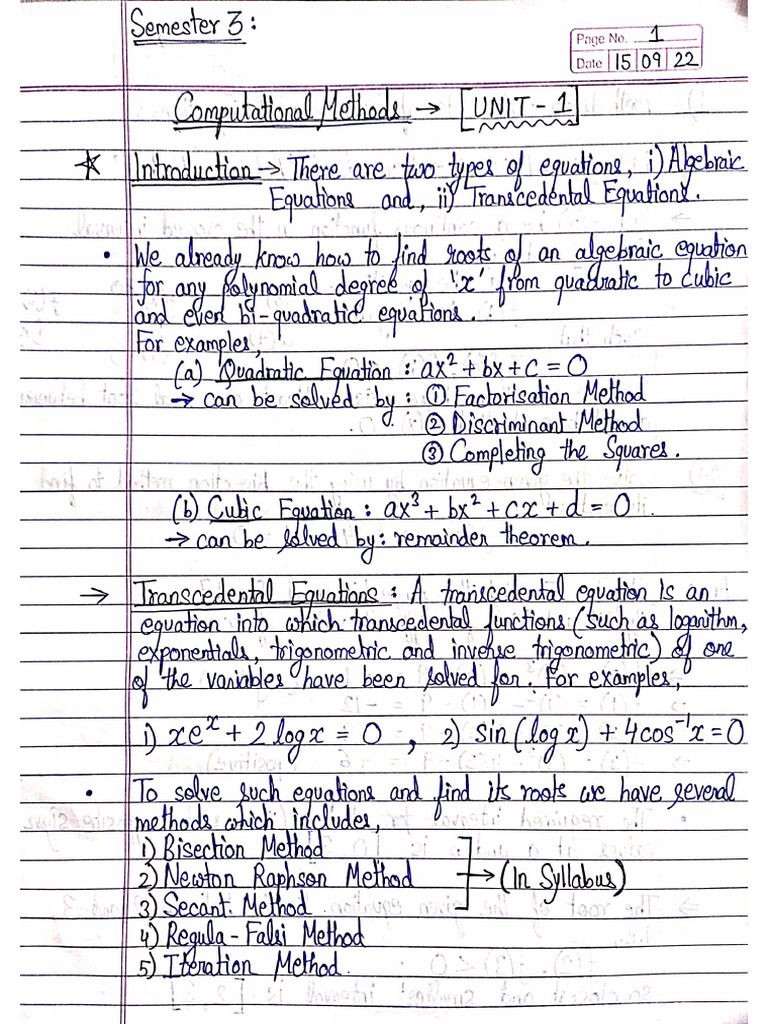 Semester 3:
Page No. 1
Date 15 09 22
Computational Methods → [UNIT - 1]
* Introduction → There are two types of equations, i) Algebraic
Equations and, ii) Transcedental Equations.
• We already know how to find roots of an algebraic equation
for any polynomial degree of 'x' from quadratic to cubic
and even bi-quadratic equations.
For examples,
(a) Quadratic Equation : ax² + bx + c = 0
→ can be solved by : ① Factorisation Method
② Discriminant Method
③ Completing the Squares.
(b) Cubic Equation : ax³ + bx² + cx + d = 0.
→ can be solved by: remainder theorem.
→ Transcedental Equations : A transcedental equation is an
equation into which transcedental functions (such as logarithm,
exponentials, trigonometric and inverse trigonometric) of one
of the variables have been solved for. For examples,
i) xeˣ + 2 log x = 0 , 2) sin (log x) + 4cos⁻¹x = 0
• To solve such equations and find its roots we have several
methods which includes,
1) Bisection Method
2) Newton Raphson Method → (In Syllabus)
3) Secant Method
4) Regula - Falsi Method
5) Iteration Method.